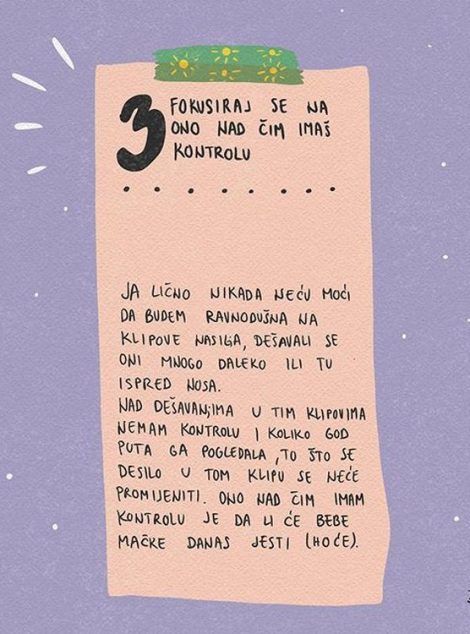 3 FOKUSIRAJ SE NA
ONO NAD ČIM IMAŠ
KONTROLU
JA LIČNO NIKADA NEĆU MOĆI
DA BUDEM RAVNODUŠNA NA
KLIPOVE NASILJA, DEŠAVALI SE
ONI MNOGO DALEKO ILI TU
ISPRED NOSA.
NAD DEŠAVANJIMA U TIM KLIPOVIMA
NEMAM KONTROLU I KOLIKO GOD
PUTA GA POGLEDALA, TO ŠTO SE
DESILO U TOM KLIPU SE NEĆE
PROMIJENITI. ONO NAD ČIM IMAM
KONTROLU JE DA LI ĆE BEBE
MAČKE DANAS JESTI (HOĆE).